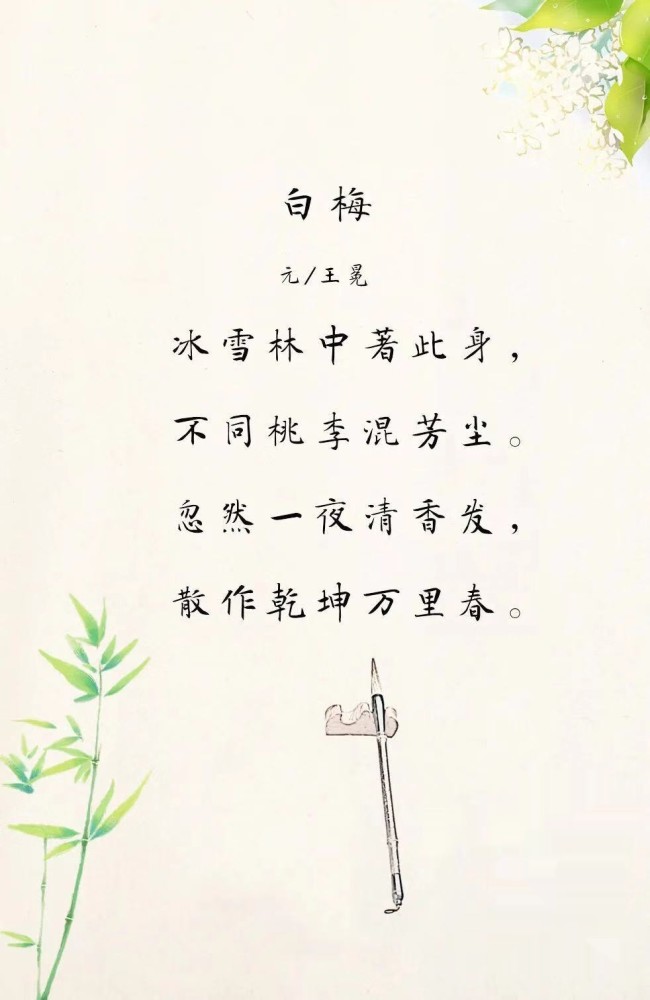 白梅
元/王冕
冰雪林中著此身，
不同桃李混芳尘。
忽然一夜清香发，
散作乾坤万里春。